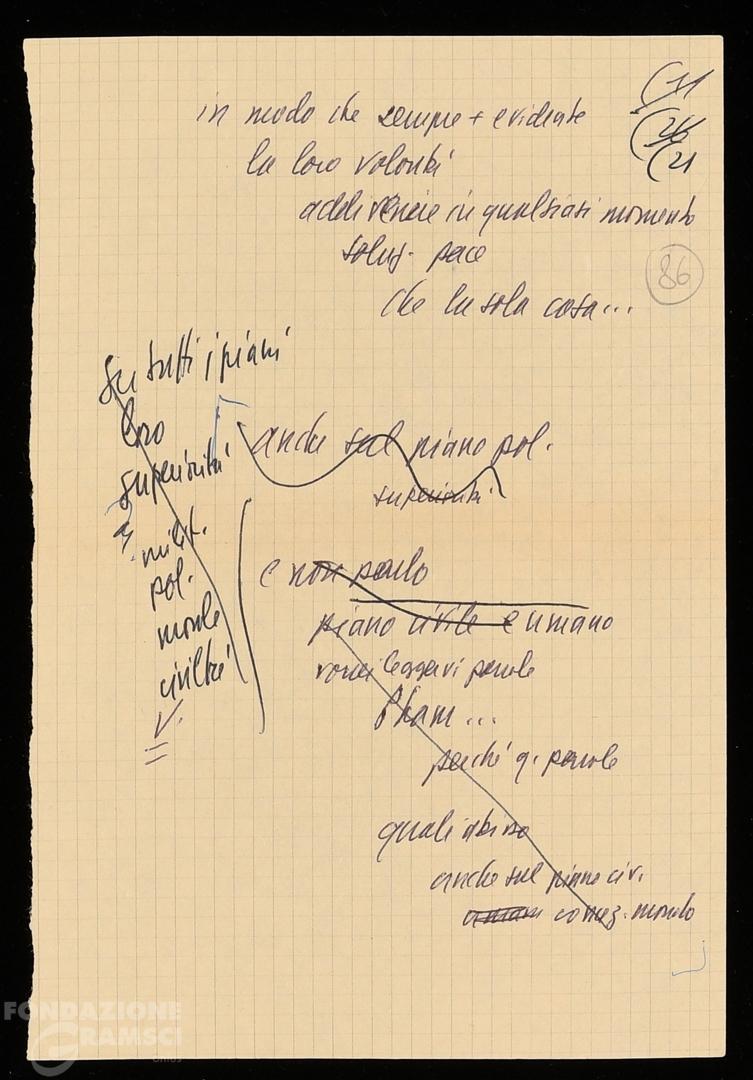 (31
(26
(21
in modo che sempre + evidente
la loro volontà
addivenire in qualsiasi momento
soluz. pace
86
che la sola cosa...
su tutti i piani
loro
superiorità
milit.
pol.
morale
civiltà
V.
anche sul piano pol.
superiorità
e non parlo
piano civile e umano
vorrei leggervi parole
Pham...
perché q. parole
quale abisso
anche sul piano civ.
umano concez. mondo
FONDAZIONE
GRAMSCI
ONLUS